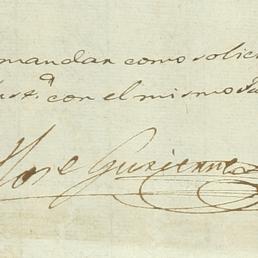 mandar como solic
Just.ª con el mismo Ju
Jose Gutierrez